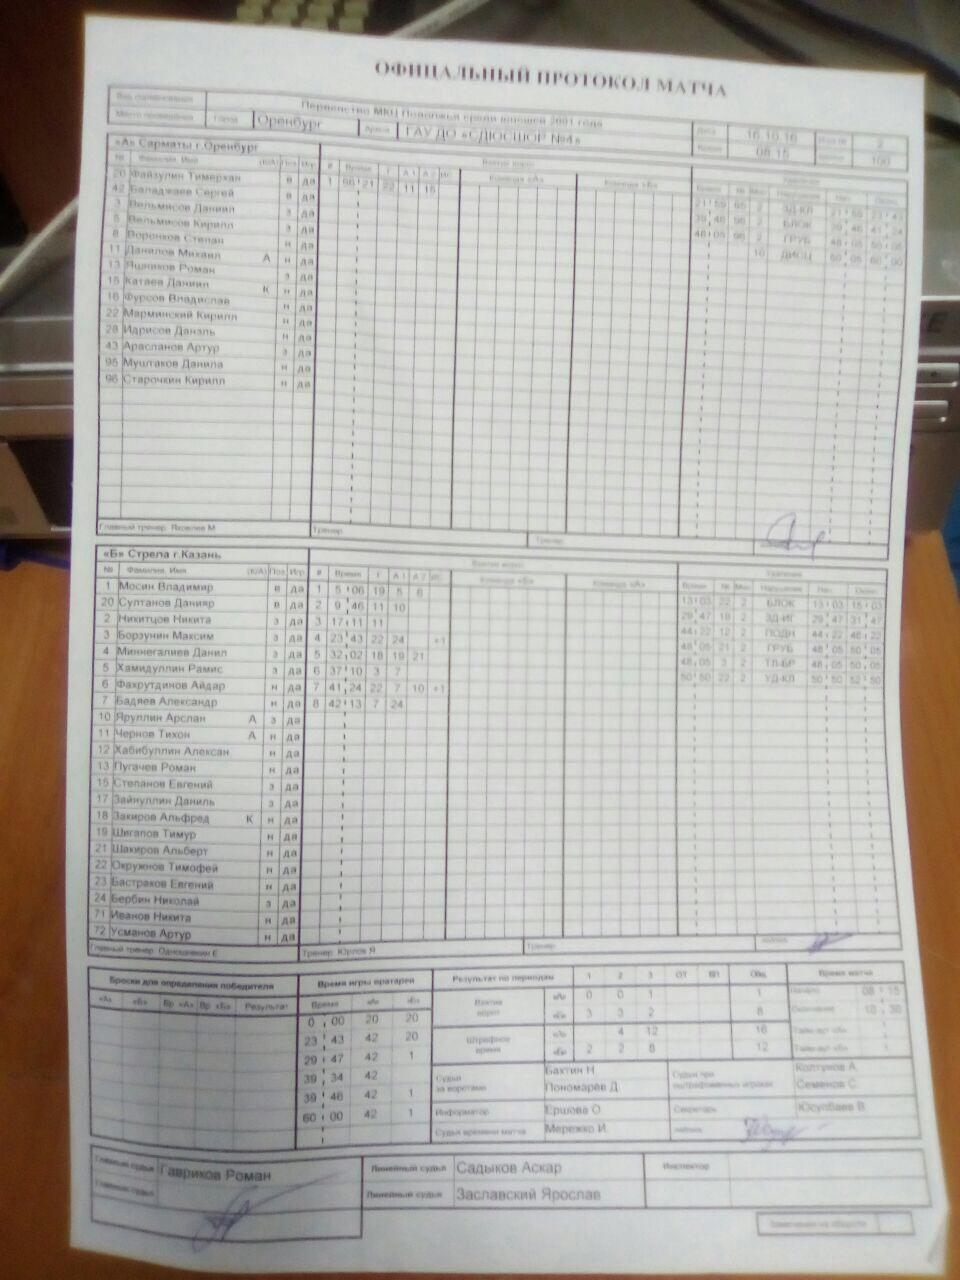 ОФИЦАЛЬНЫЙ ПРОТОКОЛ МАТЧА
Вид соревнования Первенство МКЦ Поволжья среди юношей 2001 года Дата 16.10.16 2
Место проведения Город Оренбург Арена ГАУ ДО «СДЮСШОР №4» 08 15 100
«А» Сарматы г.Оренбург Взятие ворот Удаления
№ Фамилия, Имя (К/А) Поз Игр # Время Г А 1 А 2 ИС Команда «А» Команда «Б» Время № Мин Нарушение Нач. Окон.
20 Файзулин Тимерхан в да 1 56 21 22 11 15 2 ЗД-КЛ
42 Баладжаев Сергей в да 39 46 2 БЛОК 39 46 41 24
3 Вельмисов Даниил з да 48 05 2 ГРУБ 48 05 50 05
5 Вельмисов Кирилл з да 10 ДИСЦ 60 00
8 Воронков Степан н да
11 Данилов Михаил А н да
13 Яшников Роман з да
15 Катаев Даниил К н да
16 Фурсов Владислав н да
22 Марминский Кирилл н да
28 Идрисов Данэль н да
43 Арасланов Артур з да
95 Муштаков Данила н да
96 Старочкин Кирилл н да
Главный тренер Яковлев М Тренер Тренер
«Б» Стрела г.Казань Взятие ворот Удаления
№ Фамилия, Имя (К/А) Поз Игр # Время Г А 1 А 2 ИС Команда «Б» Команда «А» Время № Мин Нарушение Нач. Окон.
1 Мосин Владимир в да 1 5 06 19 5 6 13 03 22 2 БЛОК 13 03 15 03
20 Султанов Данияр в да 2 9 46 11 10 29 47 18 2 ЗД-ИГ 29 47 31 47
2 Никитцов Никита з да 3 17 11 11 44 22 12 2 ПОДН 44 22 46 22
3 Борзунин Максим з да 4 23 43 22 24 +1 48 05 21 2 ГРУБ 48 05 50 05
4 Миннегалиев Данил з да 5 32 02 18 19 21 48 05 3 2 ТЛ-БР 48 05 50 05
5 Хамидуллин Рамис з да 6 37 10 3 7 50 50 22 2 УД-КЛ 50 50 52 50
6 Фахрутдинов Айдар н да 7 41 24 22 7 10 +1
7 Бадяев Александр н да 8 42 13 7 24
10 Яруллин Арслан А з да
11 Чернов Тихон А н да
12 Хабибуллин Алексан н да
13 Пугачев Роман н да
15 Степанов Евгений з да
17 Зайнуллин Даниль з да
18 Закиров Альфред К н да
19 Шигапов Тимур н да
21 Шакиров Альберт н да
22 Окружнов Тимофей н да
23 Бастраков Евгений н да
24 Бербин Николай з да
71 Иванов Никита н да
72 Усманов Артур н да
Главный тренер Одношевкин Е Тренер Юрлов Я Тренер
Броски для определения победителя Время игры вратарей Результат по периодам 1 2 3 ОТ БП Общ Время матча
«А» «Б» Вр «А» Вр «Б» Результат Время «А» «Б» Взятия ворот «А» 0 0 1 1 Начало 08 15
0 00 20 20 «Б» 3 3 2 8 Окончание 10 30
23 43 42 20 Штрафное время «А» 4 12 16 Тайм-аут «А»
29 47 42 1 «Б» 2 2 8 12 Тайм-аут «Б»
39 34 42 Судьи за воротами Бахтин Н Судьи при оштрафованных игроках Колтунов А
39 46 42 1 Пономарев Д Семенов С
60 00 42 1 Информатор Ершова О Секретарь Юсупбаев В
Судья времени матча Мережко И.
Главный судья Гавриков Роман Линейный судья Садыков Аскар Инспектор
Главный судья Линейный судья Заславский Ярослав
Замечания на обороте